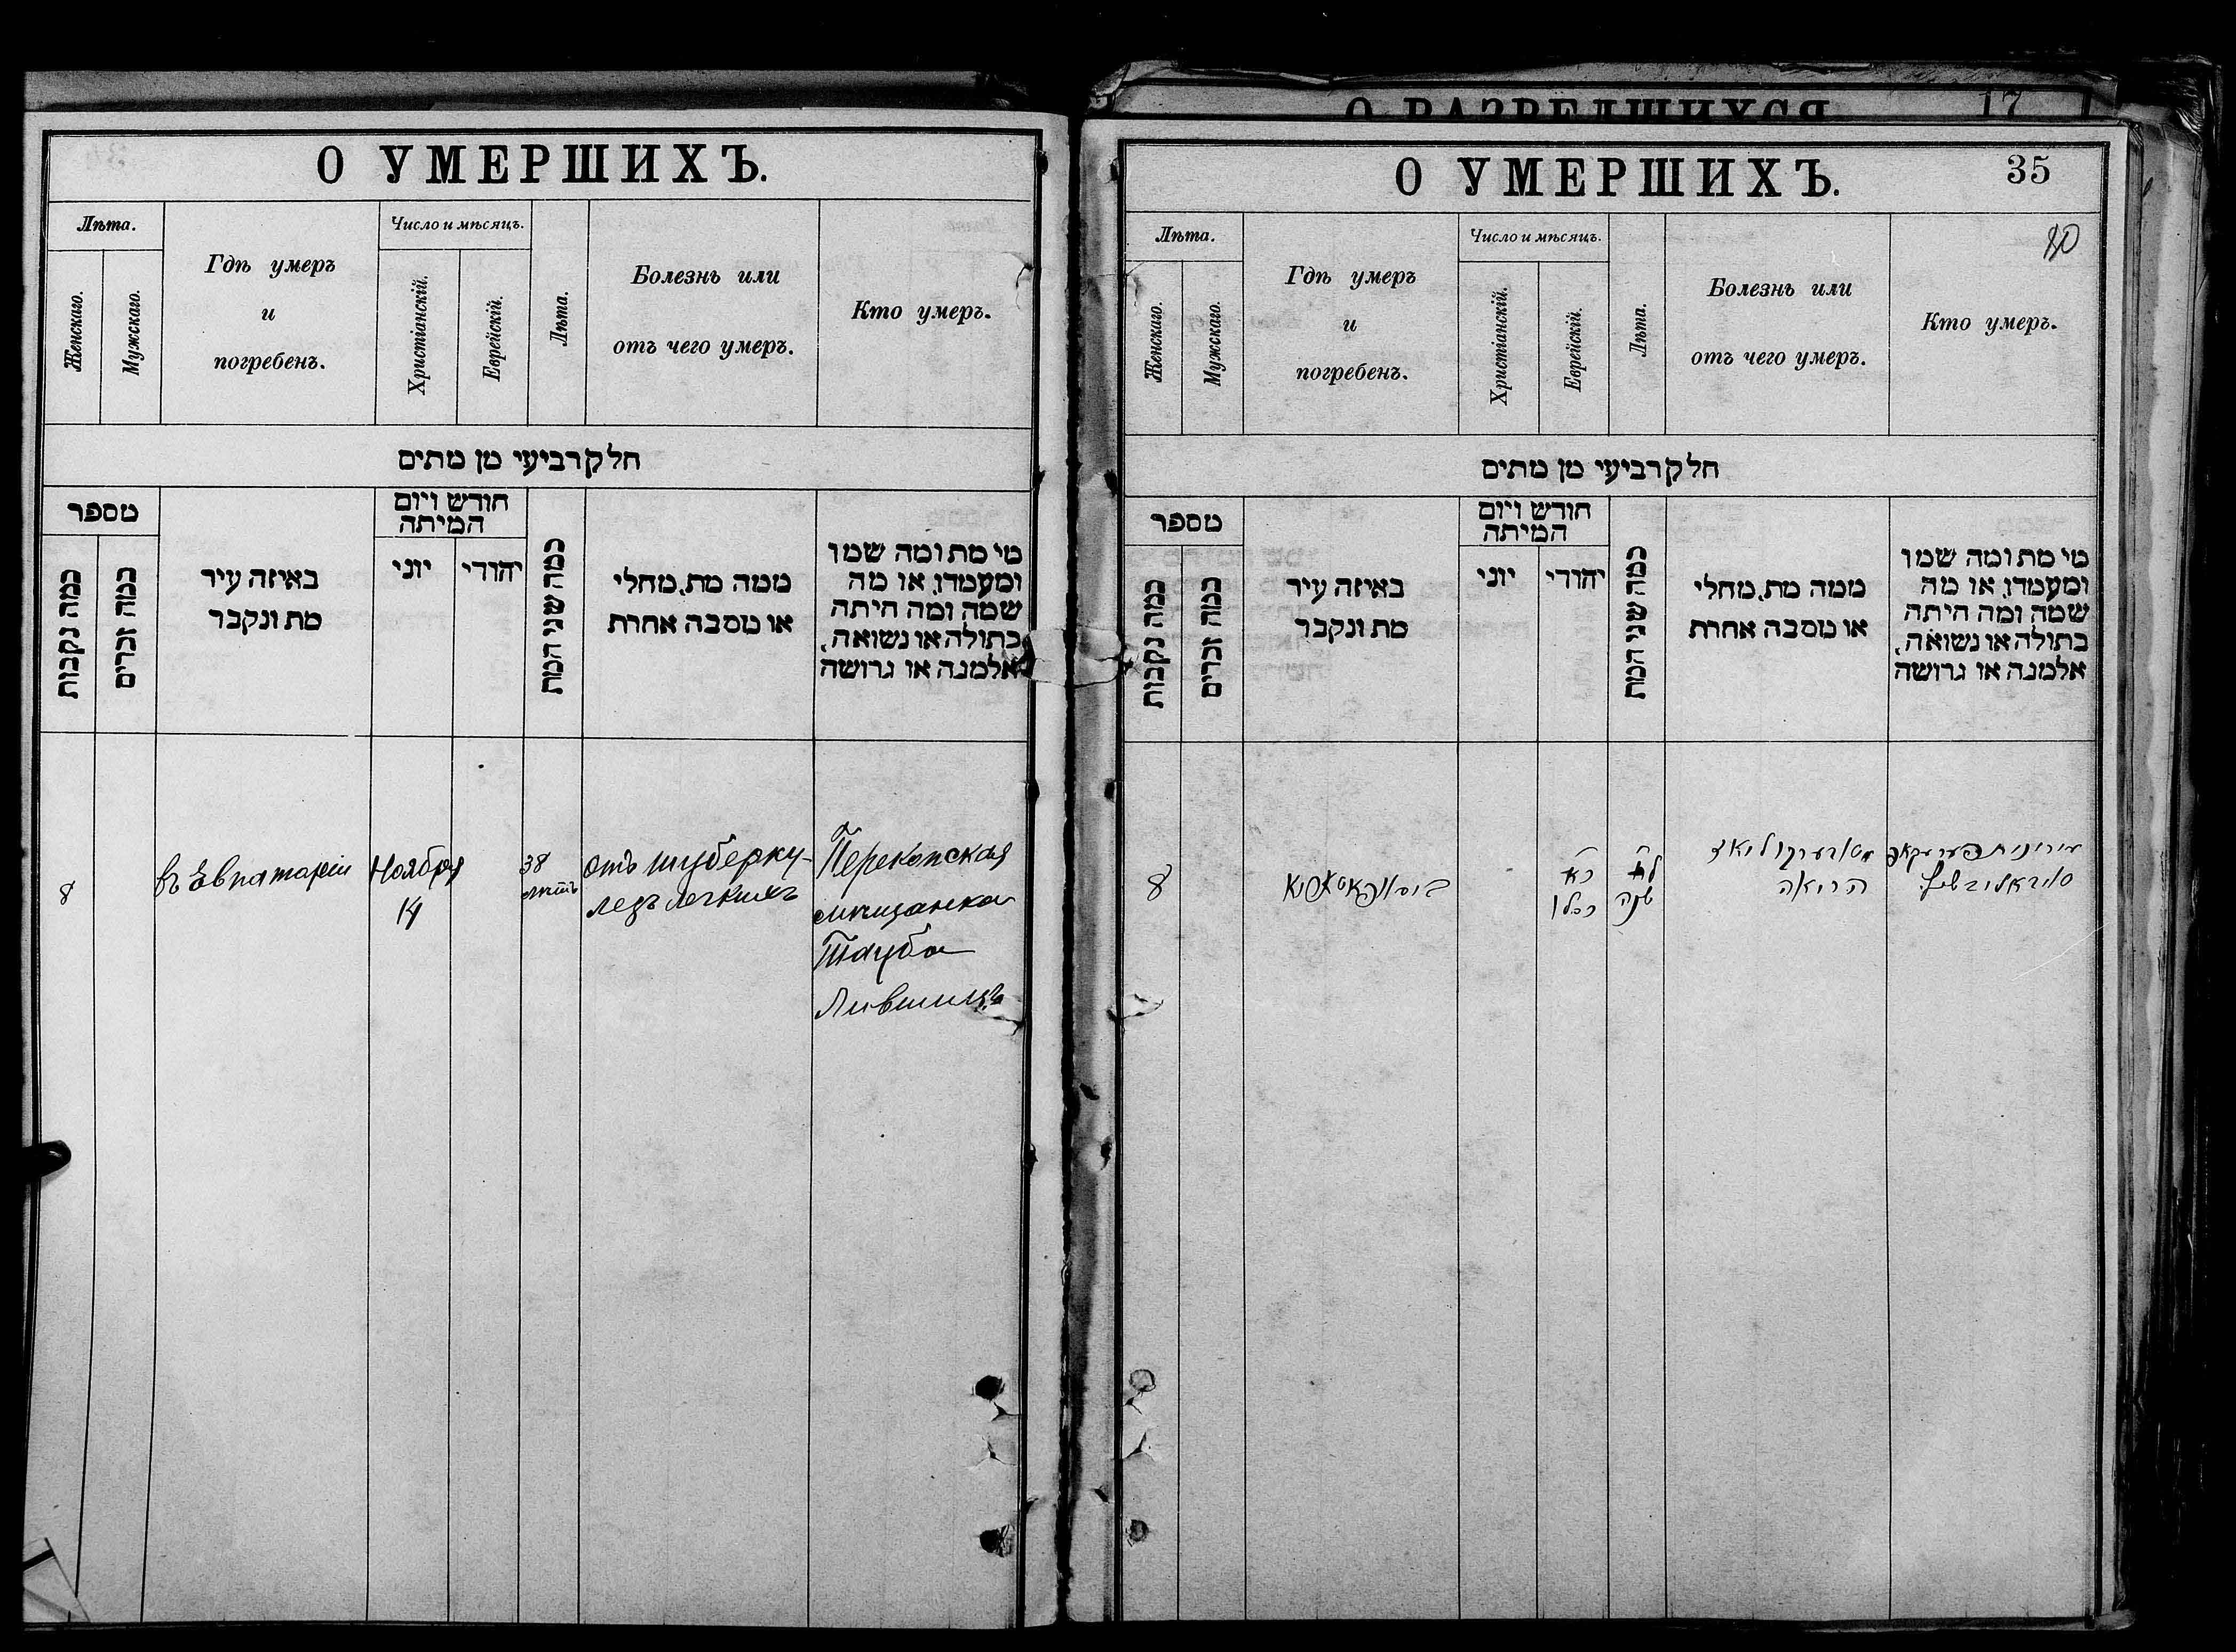 О РАЗВЕДШИХСЯ
17
О УМЕРШИХЪ.
Лѣта.
Женскаго.
Мужскаго.
Гдѣ умеръ
и
погребенъ.
Число и мѣсяцъ.
Христіанскій.
Еврейскій.
Лѣта.
Болезнь или
отъ чего умеръ.
Кто умеръ.
חלק רביעי מן מתים
מספר
כמה נקבות
כמה זכרים
באיזה עיר
מת ונקבר
חודש ויום
המיתה
יוני
יהודי
כמה שני המת
ממה מת, מחלי
או מסבה אחרת
מי מת ומה שמו
ומעמדו, או מה
שמה ומה היתה
בתולה או נשואה,
אלמנה או גרושה
8
въ Евпаторіи
Ноября
14
38
лѣтъ
отъ туберку-
леза легкихъ
Перекопская
мѣщанка
Тауба
Лившицъ
О УМЕРШИХЪ.
35
Лѣта.
Женскаго.
Мужскаго.
Гдѣ умеръ
и
погребенъ.
Число и мѣсяцъ.
Христіанскій.
Еврейскій.
Лѣта.
Болезнь или
отъ чего умеръ.
Кто умеръ.
חלק רביעי מן מתים
מספר
כמה נקבות
כמה זכרים
באיזה עיר
מת ונקבר
חודש ויום
המיתה
יוני
יהודי
כמה שני המת
ממה מת, מחלי
או מסבה אחרת
מי מת ומה שמו
ומעמדו, או מה
שמה ומה היתה
בתולה או נשואה,
אלמנה או גרושה
8
כסלו
לח
שנה
הריאה